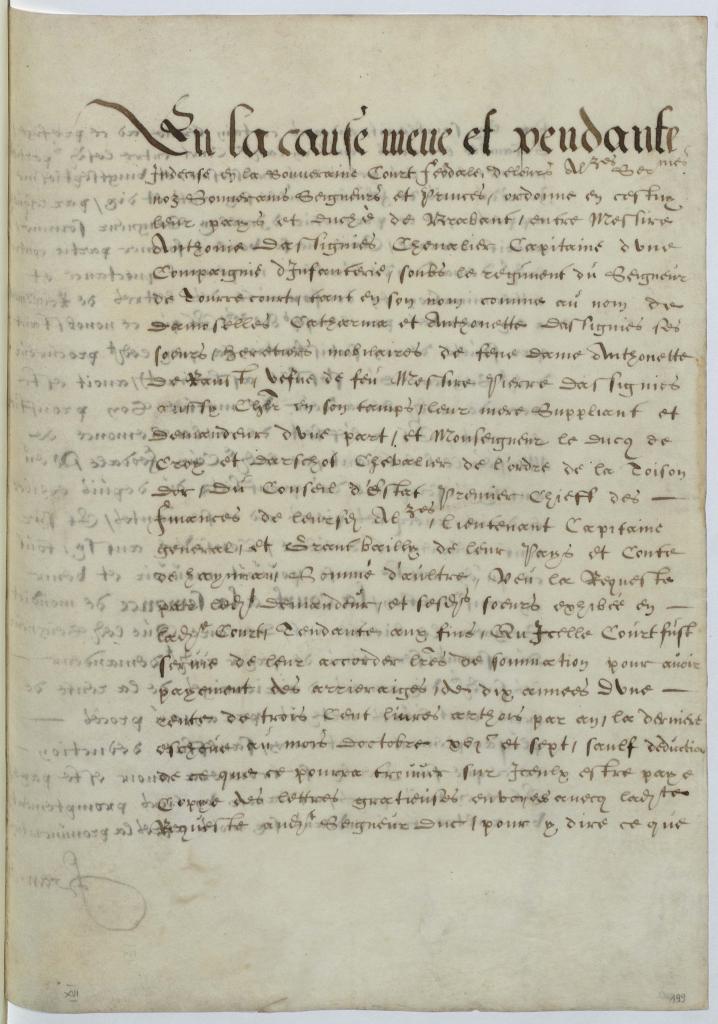 En la cause meue et pendante
Indecise en la Souveraine Court feodale de leurs Alzes Sermes
noz Souverains Seigneurs et Princes, ordonne en cestuy
leur pays et duché de Brabant, entre Messire
Anthoine Dassignies Chevalier Capitaine dune
Compaignie d'Infanterie, soubs le regiment du Seigneur
de tourrecourt, tant en son nom comme au nom de
damoiselles Catharina et Anthonette dassignies ses
soeurs, heretiers mobiliaires de feue dame Anthonette
De Ranst, vefue de feu Messire Pierre dassignies
aussy Chlr en son tamps, leur mere Suppliant et
Demandeur dune part, et Monseigneur le Ducq de
Croy et darschot Chevalier de l'ordre de la Toison
dor, du Conseil d'estat Premier Chieff des —
finances de leursd Alzes, Lieutenant Capitaine
general, et Grant bailly de leur Pays et Conte
de haynnau, Sommé d'aultre, Veu la Requeste
dud demandeur, et sesd soeurs exhibée en —
lad Court, Tendante aux fins, Qu Icelle Court fust
servie de leur accorder lres de sommation pour avoir
payement des arrieraiges de dix annees dune —
rente de trois Cent liures arthois par an, la derniere
escheue au mois doctobre xvjc et sept, saulf deduction
de ce que ce pourra trouver sur Iceulx estre paye
Coppye des lettres gratieuses envoyes avecq ladte
Requeste aud Seigneur Duc, pour y dire ce que
XVII
199